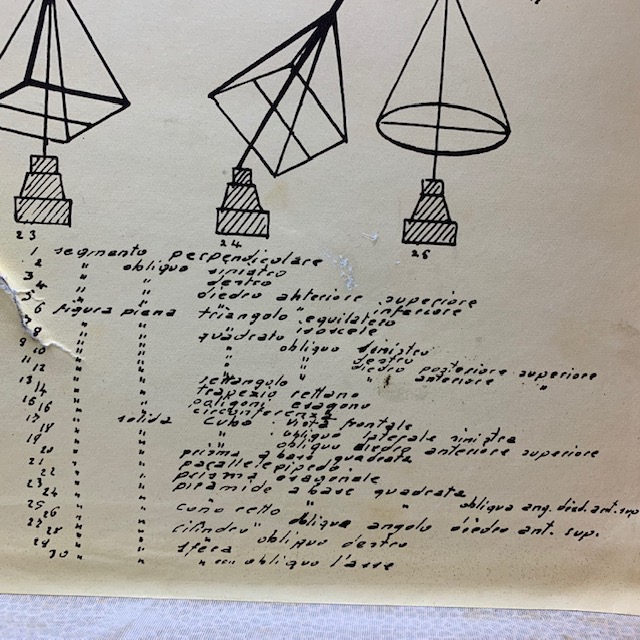 23
24
25
1 segmento perpendicolare
2 " obliquo sinistro
3 " " dentro
4 " " diedro anteriore superiore
5 " " " " inferiore
6 figura piana triangolo equilatero
7 " " " isoscele
8 " " quadrato
9 " " " obliquo sinistro
10 " " " " dentro
11 " " " " diedro posteriore superiore
12 " " " " " anteriore "
13 " " rettangolo
14 " " trapezio rettano
15 " " poligoni esagono
16 " " circonferenza
17 " solida cubo vista frontale
18 " " " obliquo laterale sinistra
19 " " " obliquo diedro anteriore superiore
20 " " prisma a base quadrata
21 " " parallelepipedo
22 " " prisma esagonale
23 " " piramide a base quadrata
24 " " " " " obliquo ang. died. ant. sup
25 " " cono retto
26 " " " obliquo angolo diedro ant. sup.
27 " " cilindro
28 " " " obliquo dentro
29 " " sfera
30 " " " obliquo l'asse